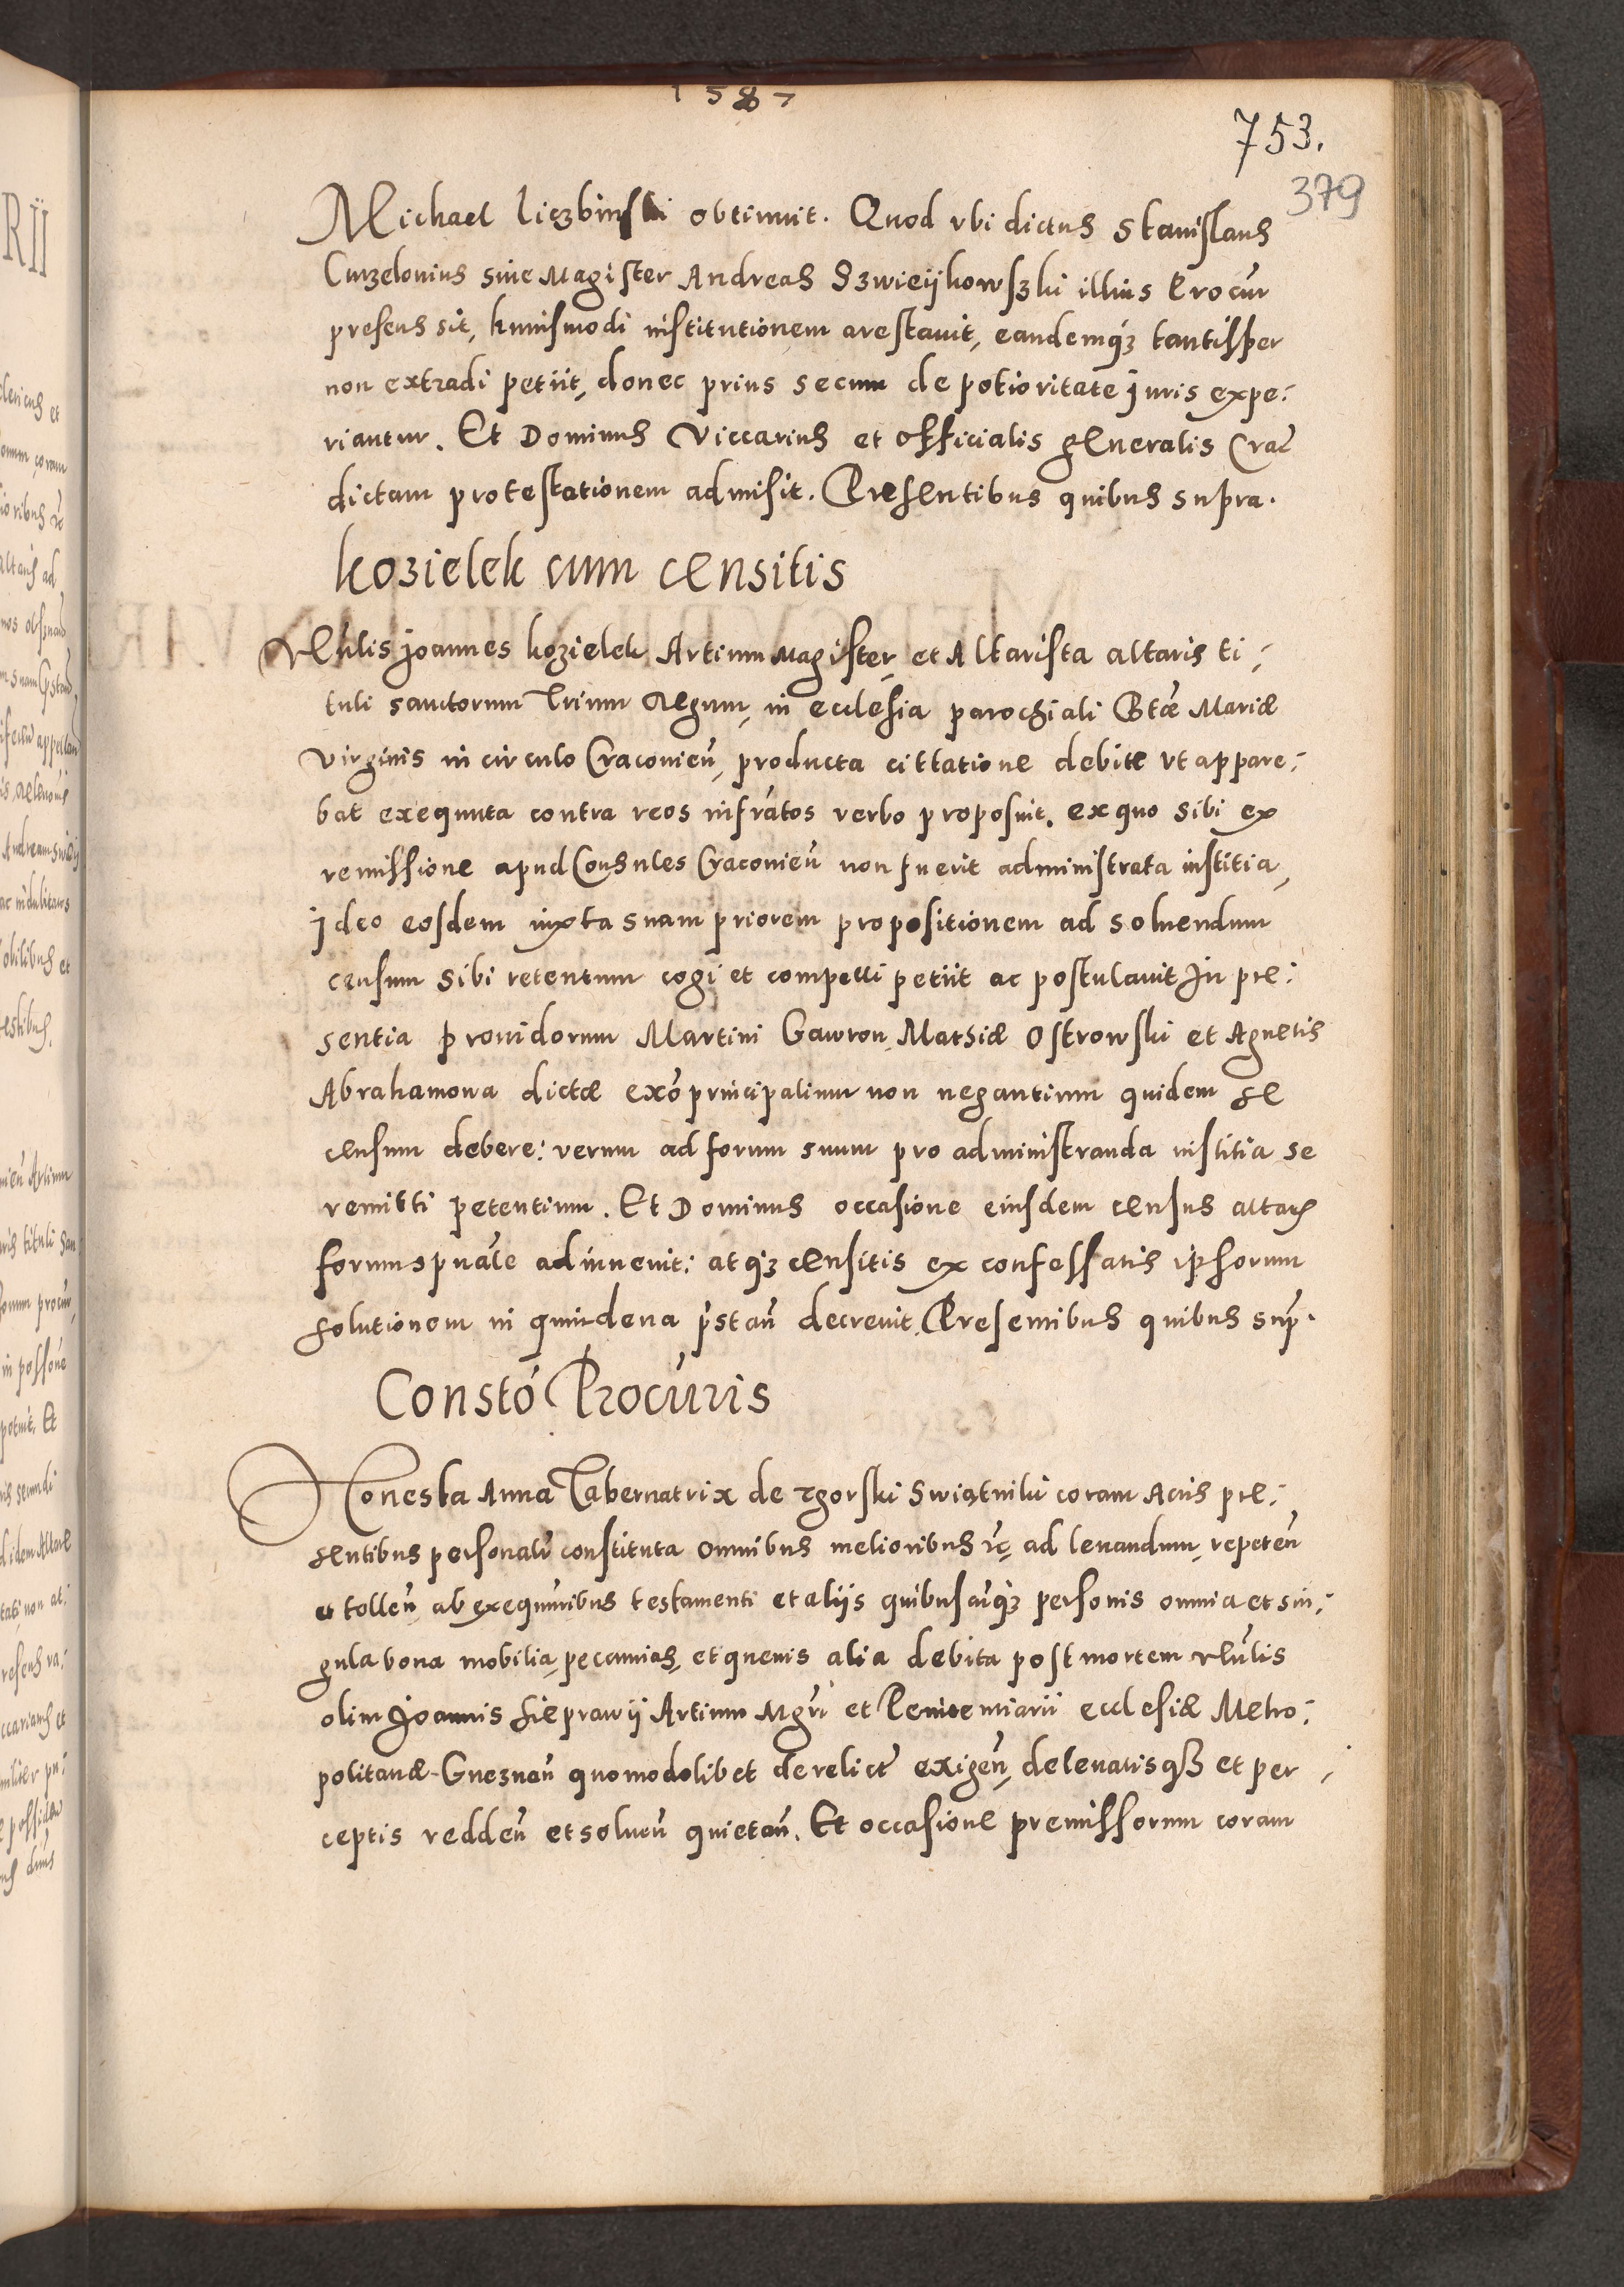 1587
753.
379
Michael Liczbinski obtinuit. Quod vbi dictus Stanislaus
Curzelouius siue Magister Andreas Szwieijkowszki illius Procúr
presens sit, huiusmodi institutionem arestauit, eandemq́ʒ tantisper
non extradi petiit, donec prius secum de potioritate iuris expe:
riantur. Et Dominus Viccarius et officialis generalis Crać
dictam protestationem admisit. Presentibus quibus supra.
Kozielek cum censitis
Vńlis Joannes Kozielek Artium Magister, et Altarista altaris ti:
tuli sanctorum Trium Regum, in ecclesia parochiali Btǽ Mariæ
Virginis in circulo Cracouień, producta cittatione debite vt appare:
bat exequuta contra reos infrátos verbo proposuit. ex quo sibi ex
remissione apud Consules Cracouień non fuerit administrata iustitia,
Ideo eosdem iuxta suam priorem propositionem ad soluendum
censum sibi retentum cogi et compelli petiit ac postulauit In pre:
sentia prouidorum Martini Gawron, Mathiæ Ostrowski et Agnetis
Abrahamowa dictæ exó principalium non negantium quidem se
censum debere: verum ad forum suum pro administranda iustitia se
remitti petentium. Et Dominus occasione eiusdem census altaris
forum spuále adinuenit: atqʒ censitis ex confessatis ipsorum
solutionem in quindena ṕstań decreuit. Presentibus quibus suṕ.
Constó Procúris
Honesta Anna Tabernatrix de Zgorski Swiątniki coram Actis pre:
sentibus personalr̃ constituta omnibus melioribus ꝛć, ad leuandum, repeteń
et tolleń ab exequutoribus testamenti et aliis quibuscúnq́ʒ personis omnia et sin:
gula bona mobilia, pecunias, et queuis alia debita post mortem Vńlis
olim Joannis Sieprawij Artium Mgŕi et Penitentiarii ecclesiæ Metro:
politanæ Gnezneń quomodolibet derelict́ exigeń, de leuatisqʒ et per
ceptis reddeń et solueń quietań. Et occasione premissorum coram